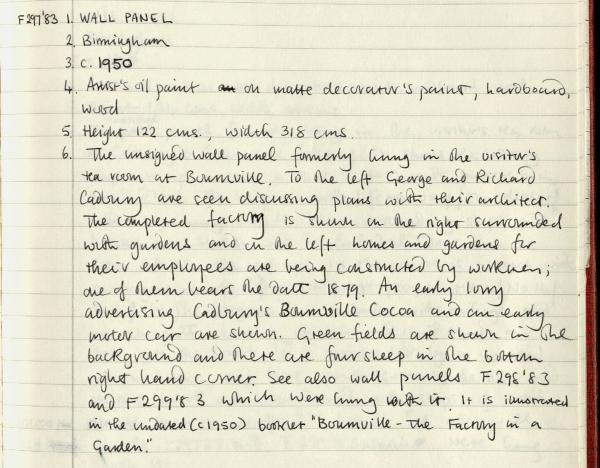 F297'83 1. WALL PANEL
2. Birmingham
3. c. 1950
4. Artist's oil paint on on matte decorator's paint, hardboard,
wood
5. Height 122 cms., width 318 cms.
6. The unsigned wall panel formerly hung in the visitor's
tea room at Bournville. To the left George and Richard
Cadbury are seen discussing plans with their architect.
The completed factory is shown on the right surrounded
with gardens and on the left homes and gardens for
their employees are being constructed by workmen;
one of them bears the date 1879. An early lorry
advertising Cadbury's Bournville Cocoa and an early
motor car are shown. Green fields are shown in the
background and there are four sheep in the bottom
right hand corner. See also wall panels F298'83
and F299'83 which were hung with it. It is illustrated
in the undated (c1950) booklet "Bournville - The Factory in a
Garden."